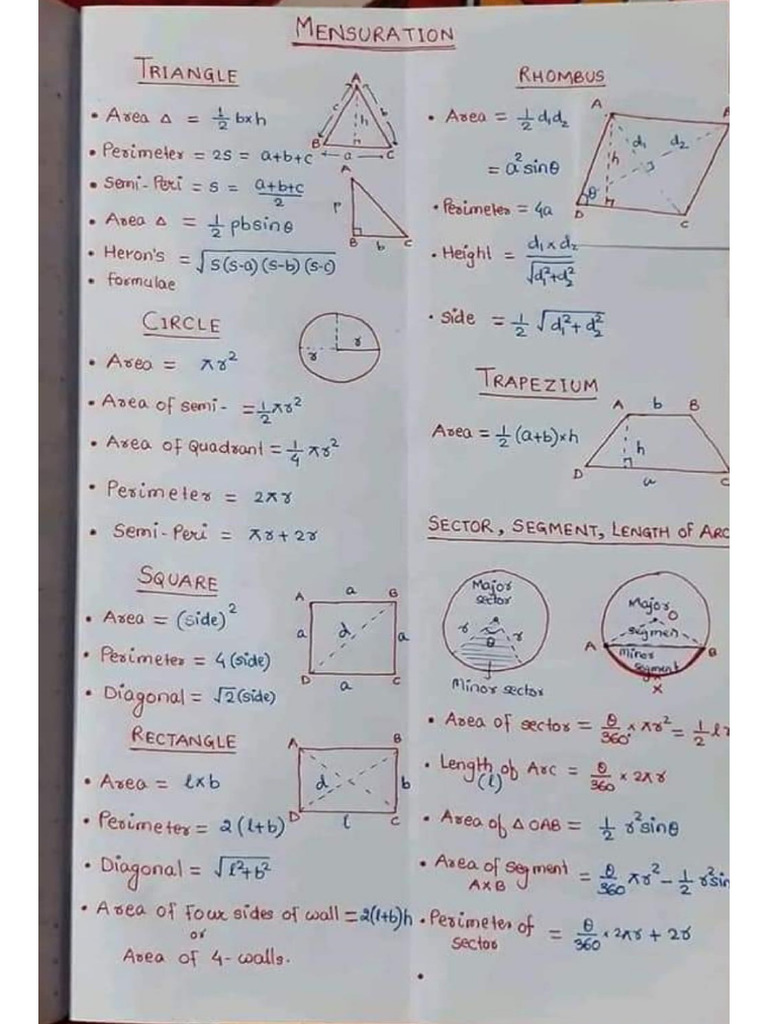 MENSURATION
TRIANGLE
• Area Δ = 1/2 b×h
• Perimeter = 2S = a+b+c
• Semi-Peri = S = a+b+c/2
• Area Δ = 1/2 pb sinθ
• Heron's = √S(S-a)(S-b)(S-c)
• formulae
A
c
b
h
B
a
C
A
P
B
b
C
CIRCLE
• Area = πr²
• Area of semi- = 1/2 πr²
• Area of Quadrant = 1/4 πr²
• Perimeter = 2πr
• Semi-Peri = πr + 2r
r
r
SQUARE
• Area = (side)²
• Perimeter = 4(side)
• Diagonal = √2(side)
A
a
B
a
d
a
D
a
C
RECTANGLE
• Area = l×b
• Perimeter = 2(l+b)
• Diagonal = √l²+b²
• Area of Four sides of wall = 2(l+b)h
or
Area of 4-walls.
A
B
d
b
D
l
C
RHOMBUS
• Area = 1/2 d₁d₂
= a² sinθ
• Perimeter = 4a
• Height = d₁×d₂/√d₁²+d₂²
• Side = 1/2 √d₁²+d₂²
A
d₁
d₂
h
θ
D
C
TRAPEZIUM
Area = 1/2 (a+b)×h
A
b
B
h
D
a
C
SECTOR, SEGMENT, LENGTH of ARC
Major
sector
r
θ
r
Minor sector
Major
O
segmen
A
B
Minor
segment
X
• Area of sector = θ/360° × πr² = 1/2 lr
• Length of Arc = θ/360 × 2πr
(l)
• Area of Δ OAB = 1/2 r² sinθ
• Area of segment = θ/360 πr² - 1/2 r² sin
AXB
• Perimeter of = θ/360 × 2πr + 2r
sector
•